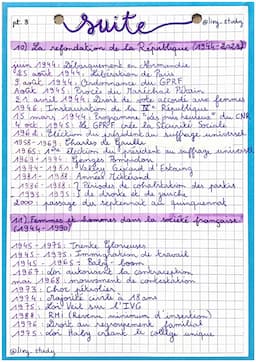 pt. 3
suite
@ling_study
10) La refondation de la République (1944-2023)
juin 1944: Débarquement en Normandie
25 août 1944: Libération de Paris
9 août 1944: Ordonnance du GPRF
août 1945: Procès du Maréchal Pétain
21 avril 1944: Droit de vote accordé aux femmes
1946: Instauration de la IVe République
15 mars 1944: Programme "Les jours heureux" du CNR
4 oct 1945: Le GPRF crée la Sécurité Sociale
1962: Election du président au suffrage universel
1958-1969: Charles de Gaulle
1965: 1ère élection du président au suffrage universel
1969-1974: Georges Pompidou
1974-1981: Valéry Giscard d'Estaing
1981-1988: Années Mitterrand
1986-1988: 2 Périodes de cohabitation des partis
1993-1995: de la droite et de gauche
2000: passage du septennat au quinquennat
11) Femmes et hommes dans la société française
(1944-1990)
1945-1975: Trente Glorieuses
1945-1975: Immigration de travail
1945-1965: Baby-boom
1967: Loi autorisant la contraception
mai 1968: mouvement de contestation
1973: Choc pétrolier
1974: majorité civile à 18 ans
1975: Loi Veil sur l'IVG
1988: RMI (Revenu minimum d'insertion)
1976: Droit au regroupement familial
1975: Loi Haby créant le collège unique
@ling_study